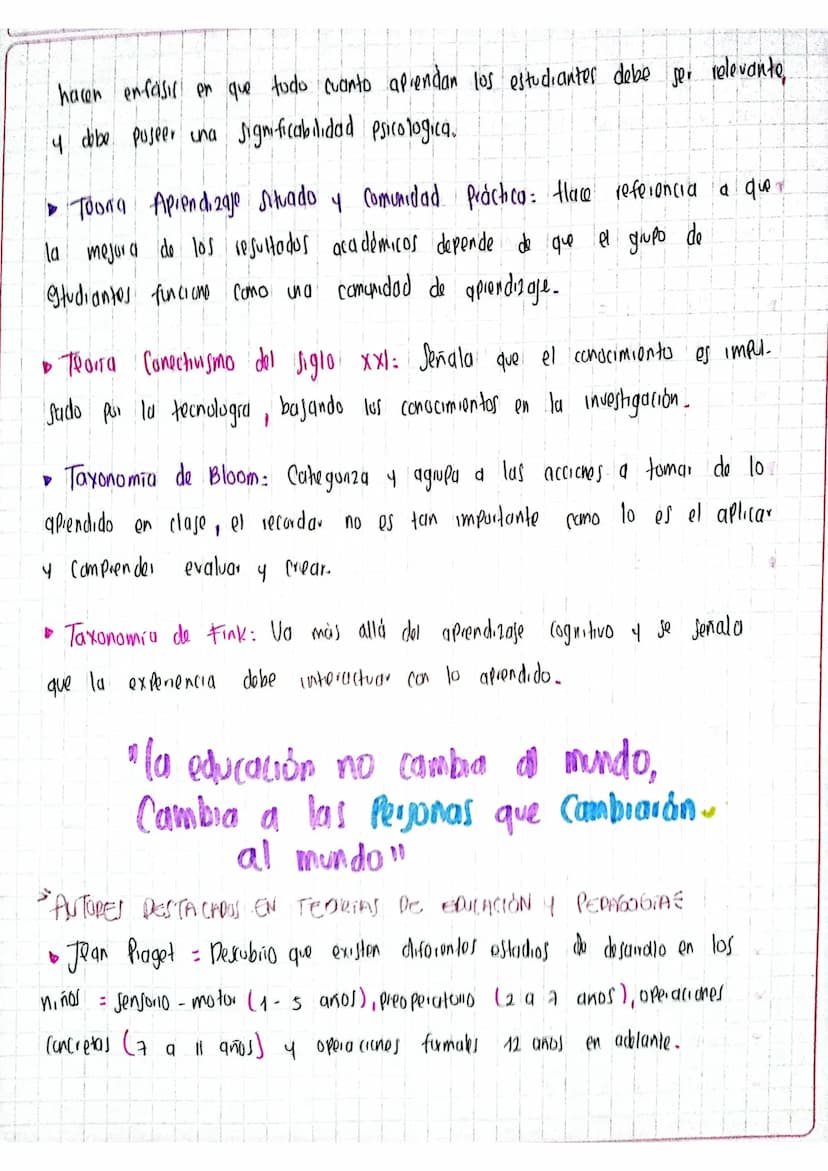 hacen enfásis en que todo cuanto aprendan los estudiantes debe ser relevante,
y debe poseer una significabilidad psicologica.
▸ Teoria Aprendizaje Situado y Comunidad Práctica: Hace referencia a que
la mejora de los resultados académicos depende de que el grupo de
estudiantes funcione como una comunidad de aprendizaje.
▸ Teoria Conectivismo del siglo XXI: Señala que el conocimiento es impul-
sado por la tecnologia, bajando los conocimientos en la investigación.
▸ Taxonomía de Bloom: Categoriza y agrupa a las acciones a tomar de lo
aprendido en clase, el recordar no es tan importante como lo es el aplicar
y comprender evaluar y crear.
▸ Taxonomía de Fink: Va más allá del aprendizaje cognitivo y se señala
que la experiencia debe interactuar con lo aprendido.
"la educación no cambia al mundo,
Cambia a las Personas que Cambiarán
al mundo"
AUTORES DESTACADOS EN TEORIAS DE EDUCACIÓN Y PEDAGOGIAS
▸ Jean Piaget = Descubrio que existen diferentes estadios de desarrollo en los
niños = sensorio-motor (1-5 años), preoperatorio (2 a 7 anos), operaciones
concretas (7 a 11 años) y operaciones formales 12 años en adelante.